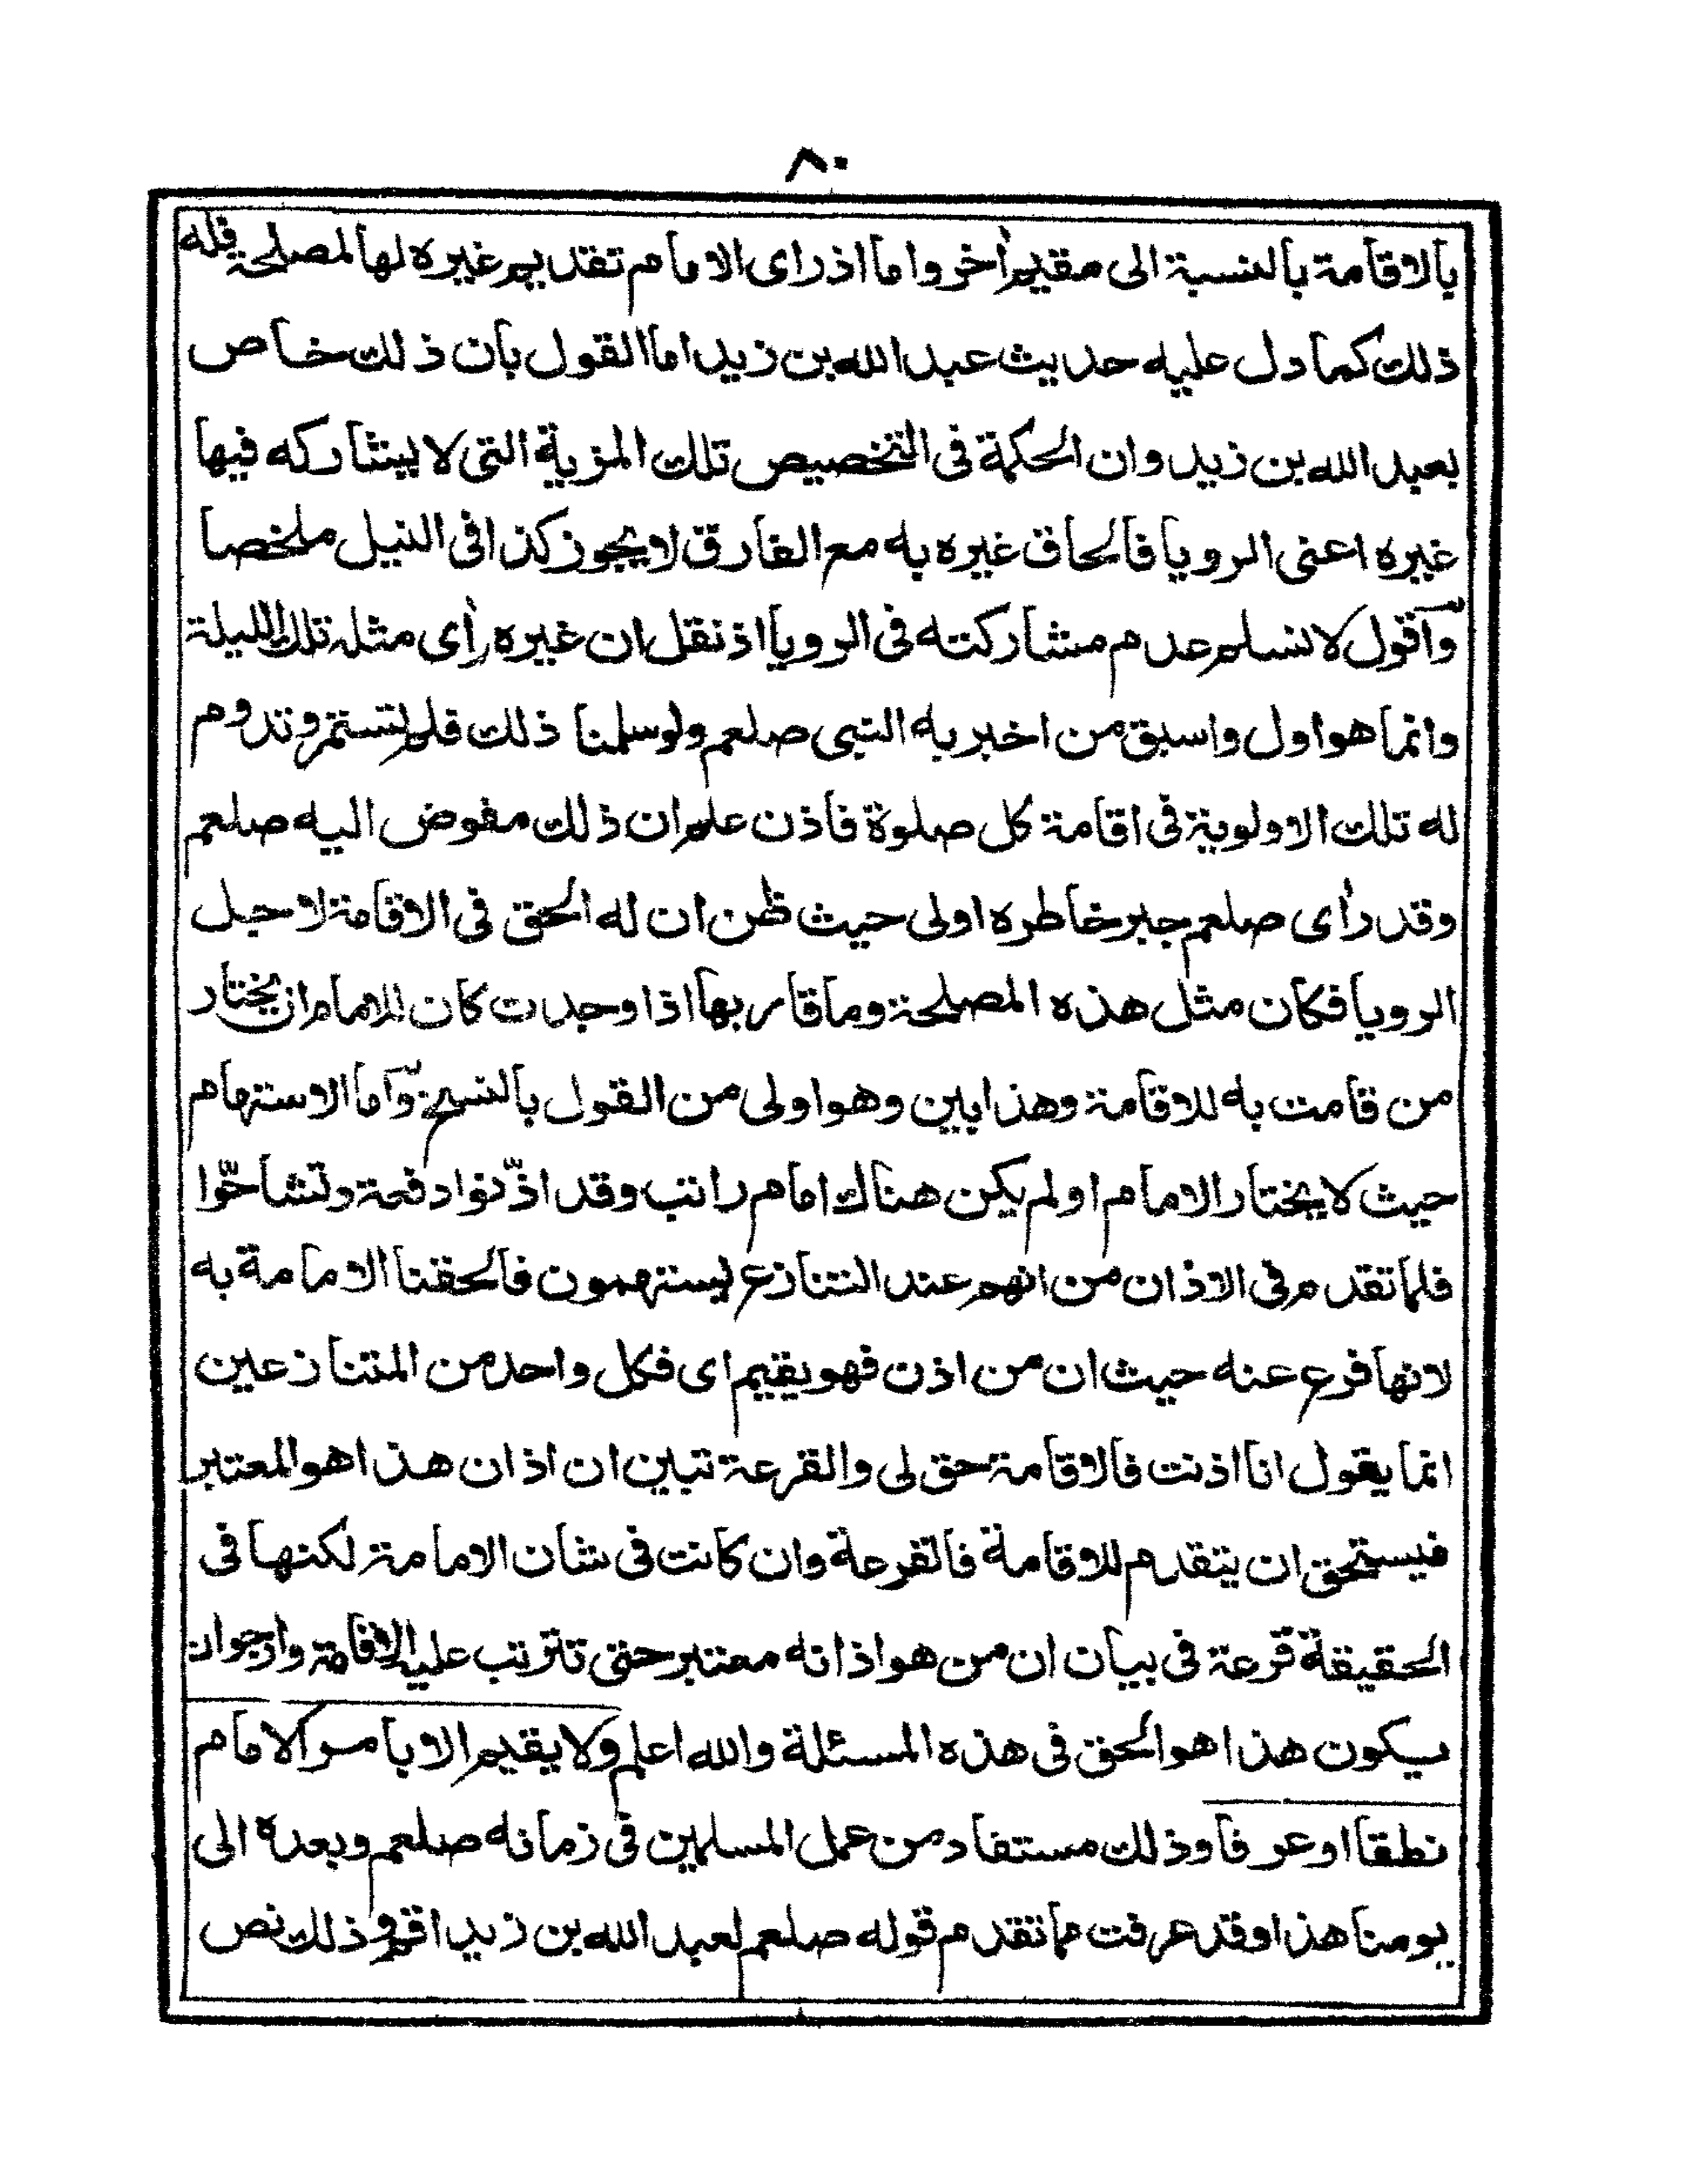 ٨٠
بالاقامة بالنسبة الى مقيم أخر واما اذ راى الامام تقديم غيره لها لمصلحة فله
ذلك كما دل عليه حديث عبد الله بن زيد اما القول بان ذلك خاص
بعبد الله بن زيد وان الحكمة فى التخصيص تلك المزية التى لا يشاركه فيها
غيره اعنى الرويا فالحاق غيره به مع الفارق لا يجوز كذا فى النيل ملخصا
واقول لا نسلم عدم مشاركته فى الرويا اذ نقل ان غيره رأى مثله تلك الليلة
وانما هو اول واسبق من اخبر به النبى صلعم ولو سلمنا ذلك فلم تستمر وتدوم
له تلك الاولوية فى اقامة كل صلوة فاذن علم ان ذلك مفوض اليه صلعم
وقد رأى صلعم جبر خاطره اولى حيث ظن ان له الحق فى الاقامة لاجل
الرويا فكان مثل هذه المصلحة وما قاربها اذا وجدت كان للامام ان يختار
من قامت به للاقامة وهذا ابين وهو اولى من القول بالنسخ واما الاستهام
حيث لا يختار الامام او لم يكن هناك امام راتب وقد اذّنوا دفعة وتشاحّوا
فلما تقدم فى الاذان من انهم عند التنازع يستهمون فالحقنا الامامة به
لانها فرع عنه حيث ان من اذن فهو يقيم اى فكل واحد من المتنازعين
انما يقول انا اذنت فالاقامة حق لى والقرعة تبين ان اذان هذا هو المعتبر
فيستحق ان يتقدم للاقامة فالقرعة وان كانت فى شان الامامة لكنها فى
الحقيقة قرعة فى بيان ان من هو اذانه معتبر حتى تترتب عليه الاقامة وارجو ان
يكون هذا هو الحق فى هذه المسئلة والله اعلم ولا يقيم الا بامر الامام
نطقا او عرفا وذلك مستفاد من عمل المسلمين فى زمانه صلعم وبعده الى
يومنا هذا وقد عرفت مما تقدم قوله صلعم لعبد الله بن زيد اقم وذلك نص